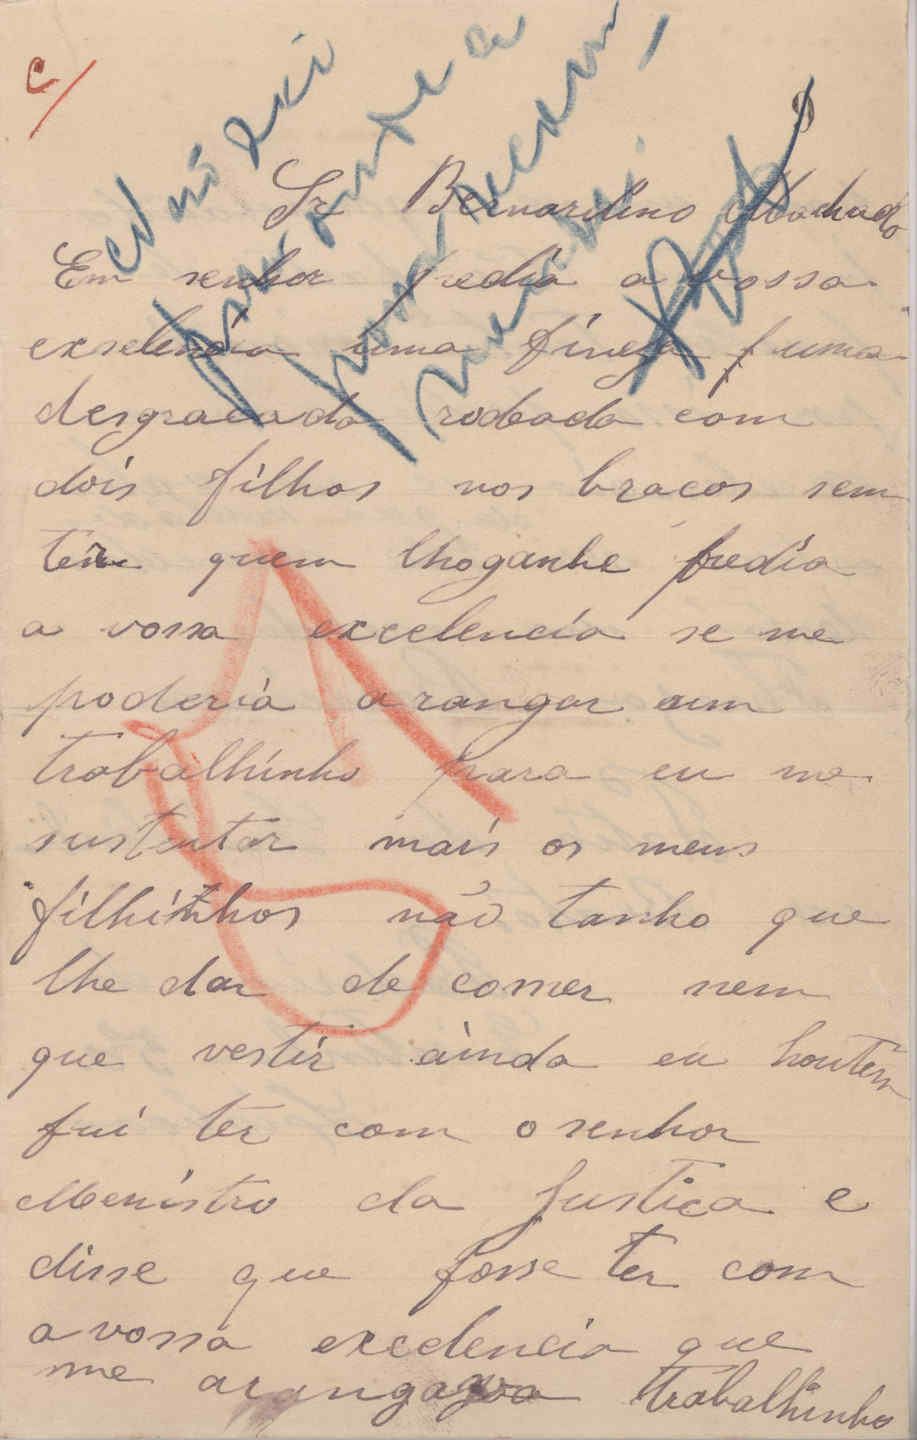 c/
Sr Bernardino Machado
Em senhor pedia a vossa
exselencia uma fineza f uma
desgracada rodeada com
dois filhos nos bracos sem
ter quem lhoganhe pedia
a vossa excelencia se me
poderia arangar um
trabalhinho para eu me
sustentar mais os meus
filhinhos não tanho que
lhe dar de comer nem
que vestir ainda eu hontem
fui ter com o senhor
Menistro da Justica e
disse que fosse ter com
a vossa excelencia que
me arangava trabalhinho